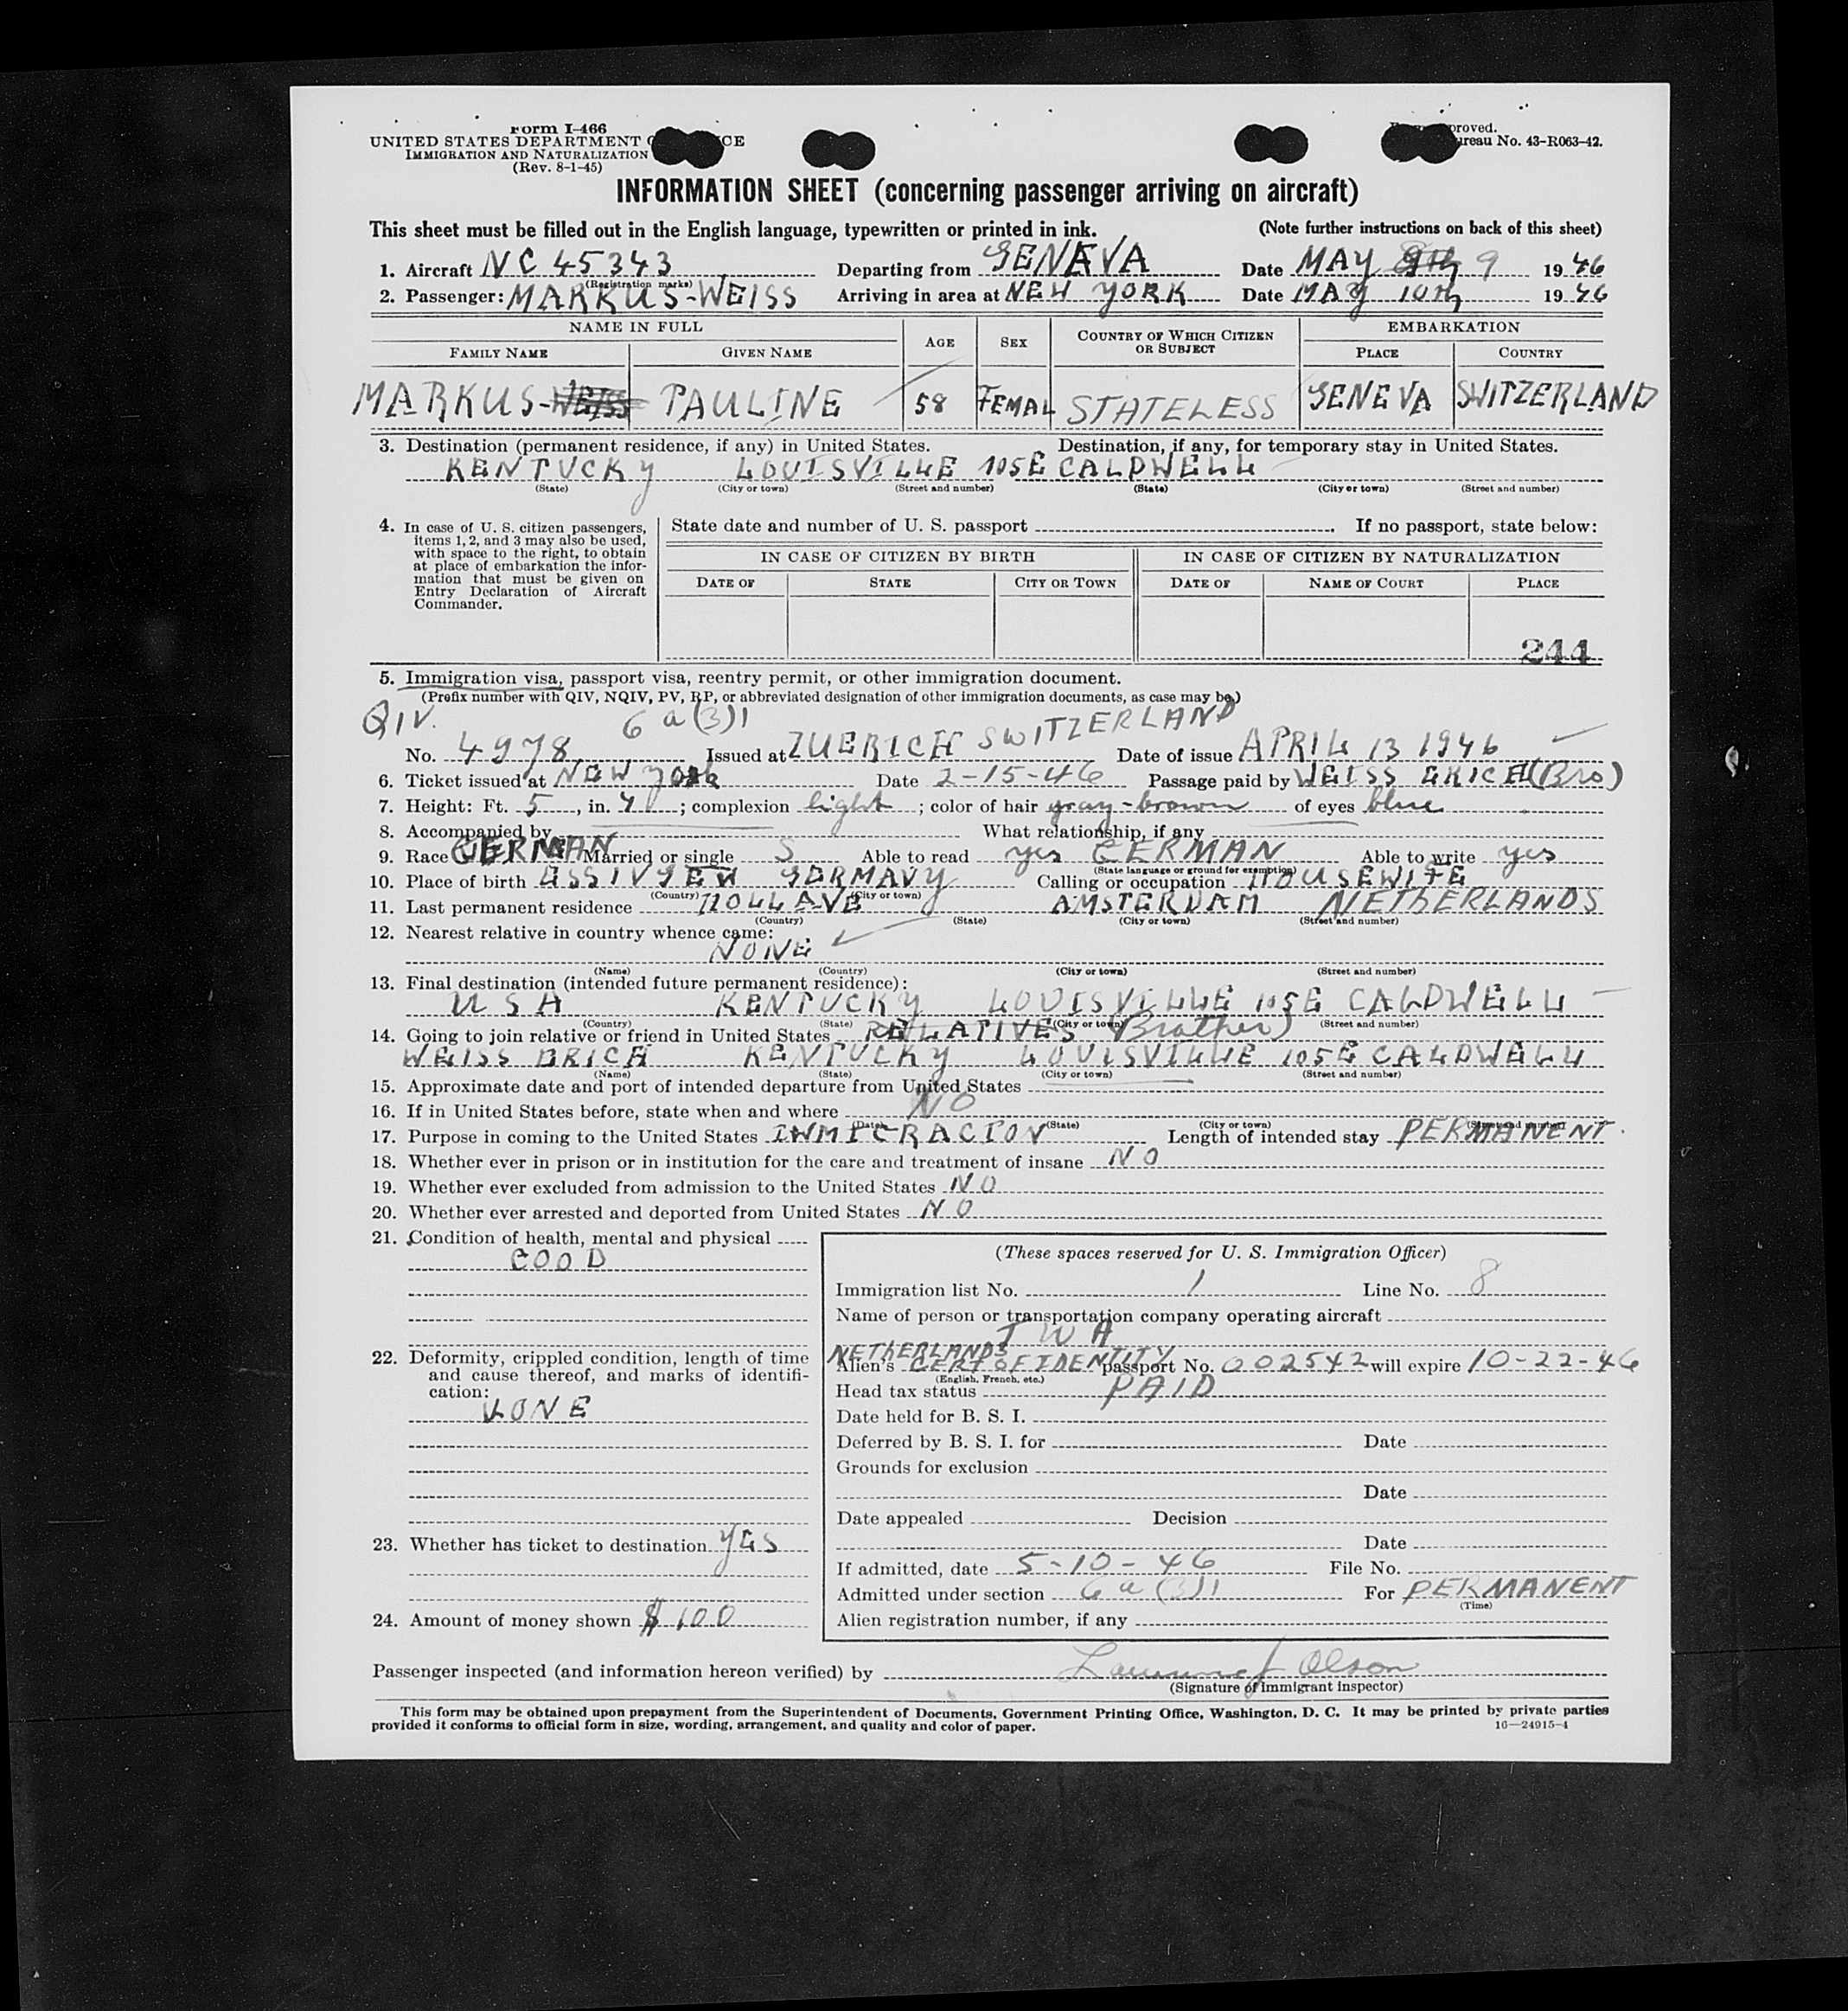 Form I-466
UNITED STATES DEPARTMENT
IMMIGRATION AND NATURALIZATION
(Rev. 8-1-45)
Bureau No. 43-R063-42.
INFORMATION SHEET (concerning passenger arriving on aircraft)
This sheet must be filled out in the English language, typewritten or printed in ink. (Note further instructions on back of this sheet)
1. Aircraft NC 45343 Departing from GENEVA Date MAY 9 1946
(Registration marks)
2. Passenger: MARKUS-WEISS Arriving in area at NEW YORK Date MAY 10th 1946
NAME IN FULL AGE SEX COUNTRY OF WHICH CITIZEN OR SUBJECT EMBARKATION
FAMILY NAME GIVEN NAME PLACE COUNTRY
MARKUS-WEISS PAULINE 58 FEMAL STATELESS GENEVA SWITZERLAND
3. Destination (permanent residence, if any) in United States. Destination, if any, for temporary stay in United States.
KENTUCKY LOUISVILLE 105E CALDWELL
(State) (City or town) (Street and number) (State) (City or town) (Street and number)
4. In case of U. S. citizen passengers, items 1, 2, and 3 may also be used, with space to the right, to obtain at place of embarkation the information that must be given on Entry Declaration of Aircraft Commander.
State date and number of U. S. passport. If no passport, state below:
IN CASE OF CITIZEN BY BIRTH IN CASE OF CITIZEN BY NATURALIZATION
DATE OF STATE CITY OR TOWN DATE OF NAME OF COURT PLACE
244
5. Immigration visa, passport visa, reentry permit, or other immigration document.
(Prefix number with QIV, NQIV, PV, RP, or abbreviated designation of other immigration documents, as case may be)
QIV. 6 a (3) 1
No. 4978 Issued at ZUERICH SWITZERLAND Date of issue APRIL 13 1946
6. Ticket issued at NEW YORK Date 2-15-46 Passage paid by WEISS ERICH (Bro)
7. Height: Ft. 5, in. 1; complexion light; color of hair gray-brown of eyes blue
8. Accompanied by What relationship, if any
9. Race GERMAN Married or single S Able to read yes GERMAN Able to write yes
(State language or ground for exemption)
10. Place of birth ESSINGEN GERMANY Calling or occupation HOUSEWIFE
(Country) (City or town)
11. Last permanent residence AMSTERDAM NETHERLANDS
(Country) (State) (City or town) (Street and number)
12. Nearest relative in country whence came:
NONE
(Name) (Country) (City or town) (Street and number)
13. Final destination (intended future permanent residence):
USA KENTUCKY LOUISVILLE 105E CALDWELL
(Country) (State) (City or town) (Street and number)
14. Going to join relative or friend in United States RELATIVES (Brother)
WEISS ERICH KENTUCKY LOUISVILLE 105E CALDWELL
(Name) (State) (City or town) (Street and number)
15. Approximate date and port of intended departure from United States
16. If in United States before, state when and where NO
(Date) (State) (City or town) (Street and number)
17. Purpose in coming to the United States INMIGRACION Length of intended stay PERMANENT.
18. Whether ever in prison or in institution for the care and treatment of insane NO
19. Whether ever excluded from admission to the United States NO
20. Whether ever arrested and deported from United States NO
21. Condition of health, mental and physical
GOOD
22. Deformity, crippled condition, length of time and cause thereof, and marks of identification:
NONE
23. Whether has ticket to destination YES
24. Amount of money shown $100
(These spaces reserved for U. S. Immigration Officer)
Immigration list No. 1 Line No. 8
Name of person or transportation company operating aircraft
TWA
NETHERLANDS
Alien's CERT OF IDENTITY passport No. 002542 will expire 10-22-46
(English, French, etc.)
Head tax status PAID
Date held for B. S. I.
Deferred by B. S. I. for Date
Grounds for exclusion
Date
Date appealed Decision
Date
If admitted, date 5-10-46 File No.
Admitted under section 6 a (3) 1 For PERMANENT
(Time)
Alien registration number, if any
Passenger inspected (and information hereon verified) by Olson
(Signature of immigrant inspector)
This form may be obtained upon prepayment from the Superintendent of Documents, Government Printing Office, Washington, D. C. It may be printed by private parties
provided it conforms to official form in size, wording, arrangement, and quality and color of paper. 16—24915-4